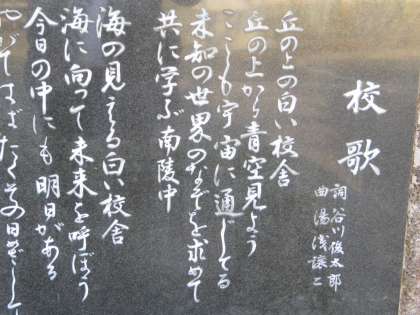 校歌
詞 谷川俊太郎
曲 湯浅譲二
丘の上の白い校舎
丘の上から青空見よう
ここも宇宙に通じてる
未知の世界のなぞを求めて
共に学ぶ南陵中
海の見える白い校舎
海に向って未来を呼ぼう
今日の中にも明日がある
やがてはばたくその日めざして